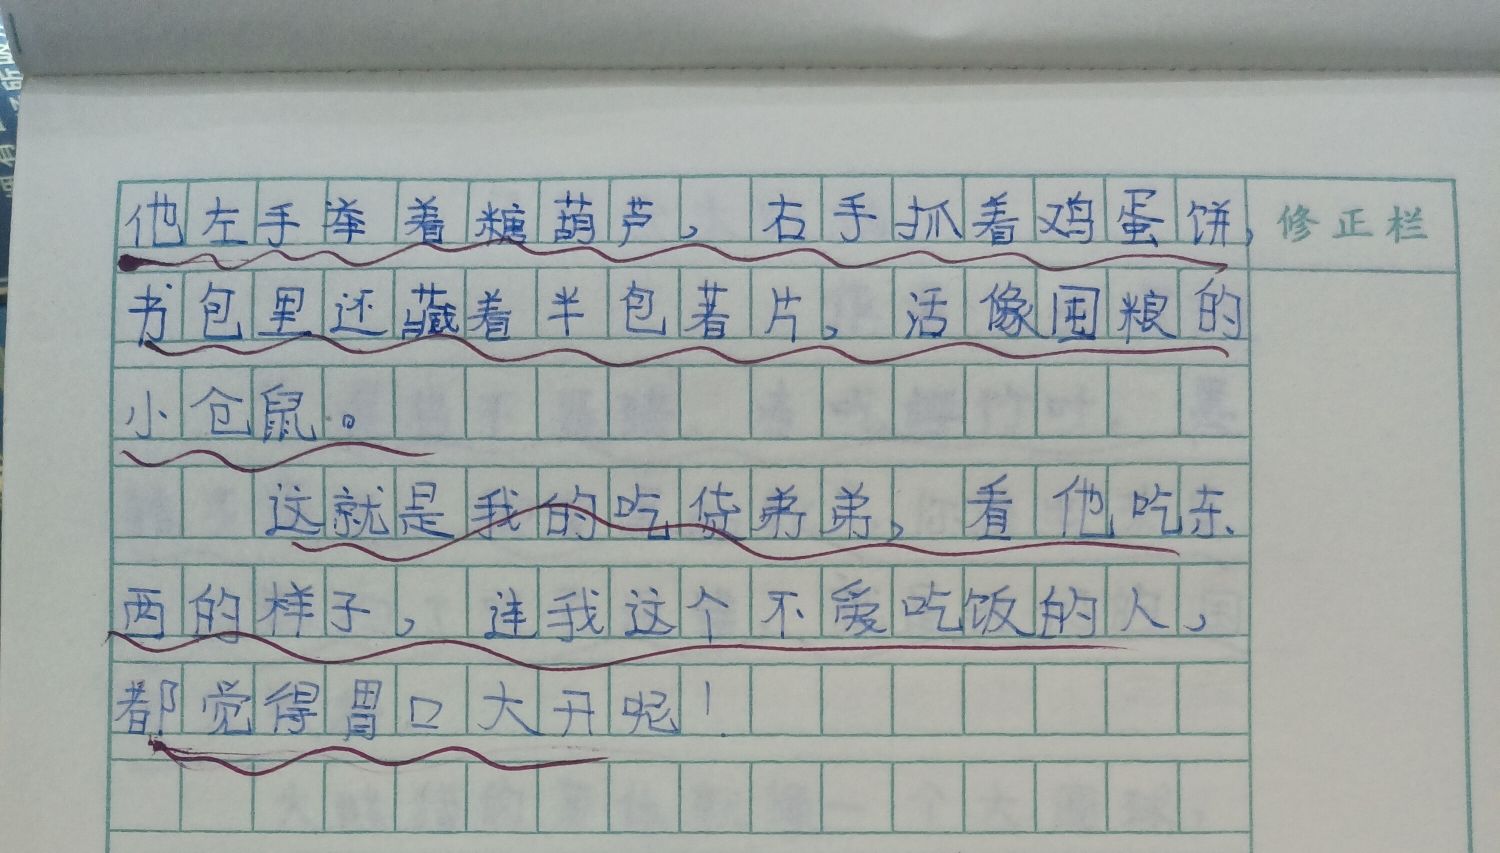 他左手举着糖葫芦，右手抓着鸡蛋饼，
修正栏
书包里还藏着半包薯片，活像囤粮的
小仓鼠。
这就是我的吃货弟弟，看他吃东
西的样子，连我这个不爱吃饭的人，
都觉得胃口大开呢！